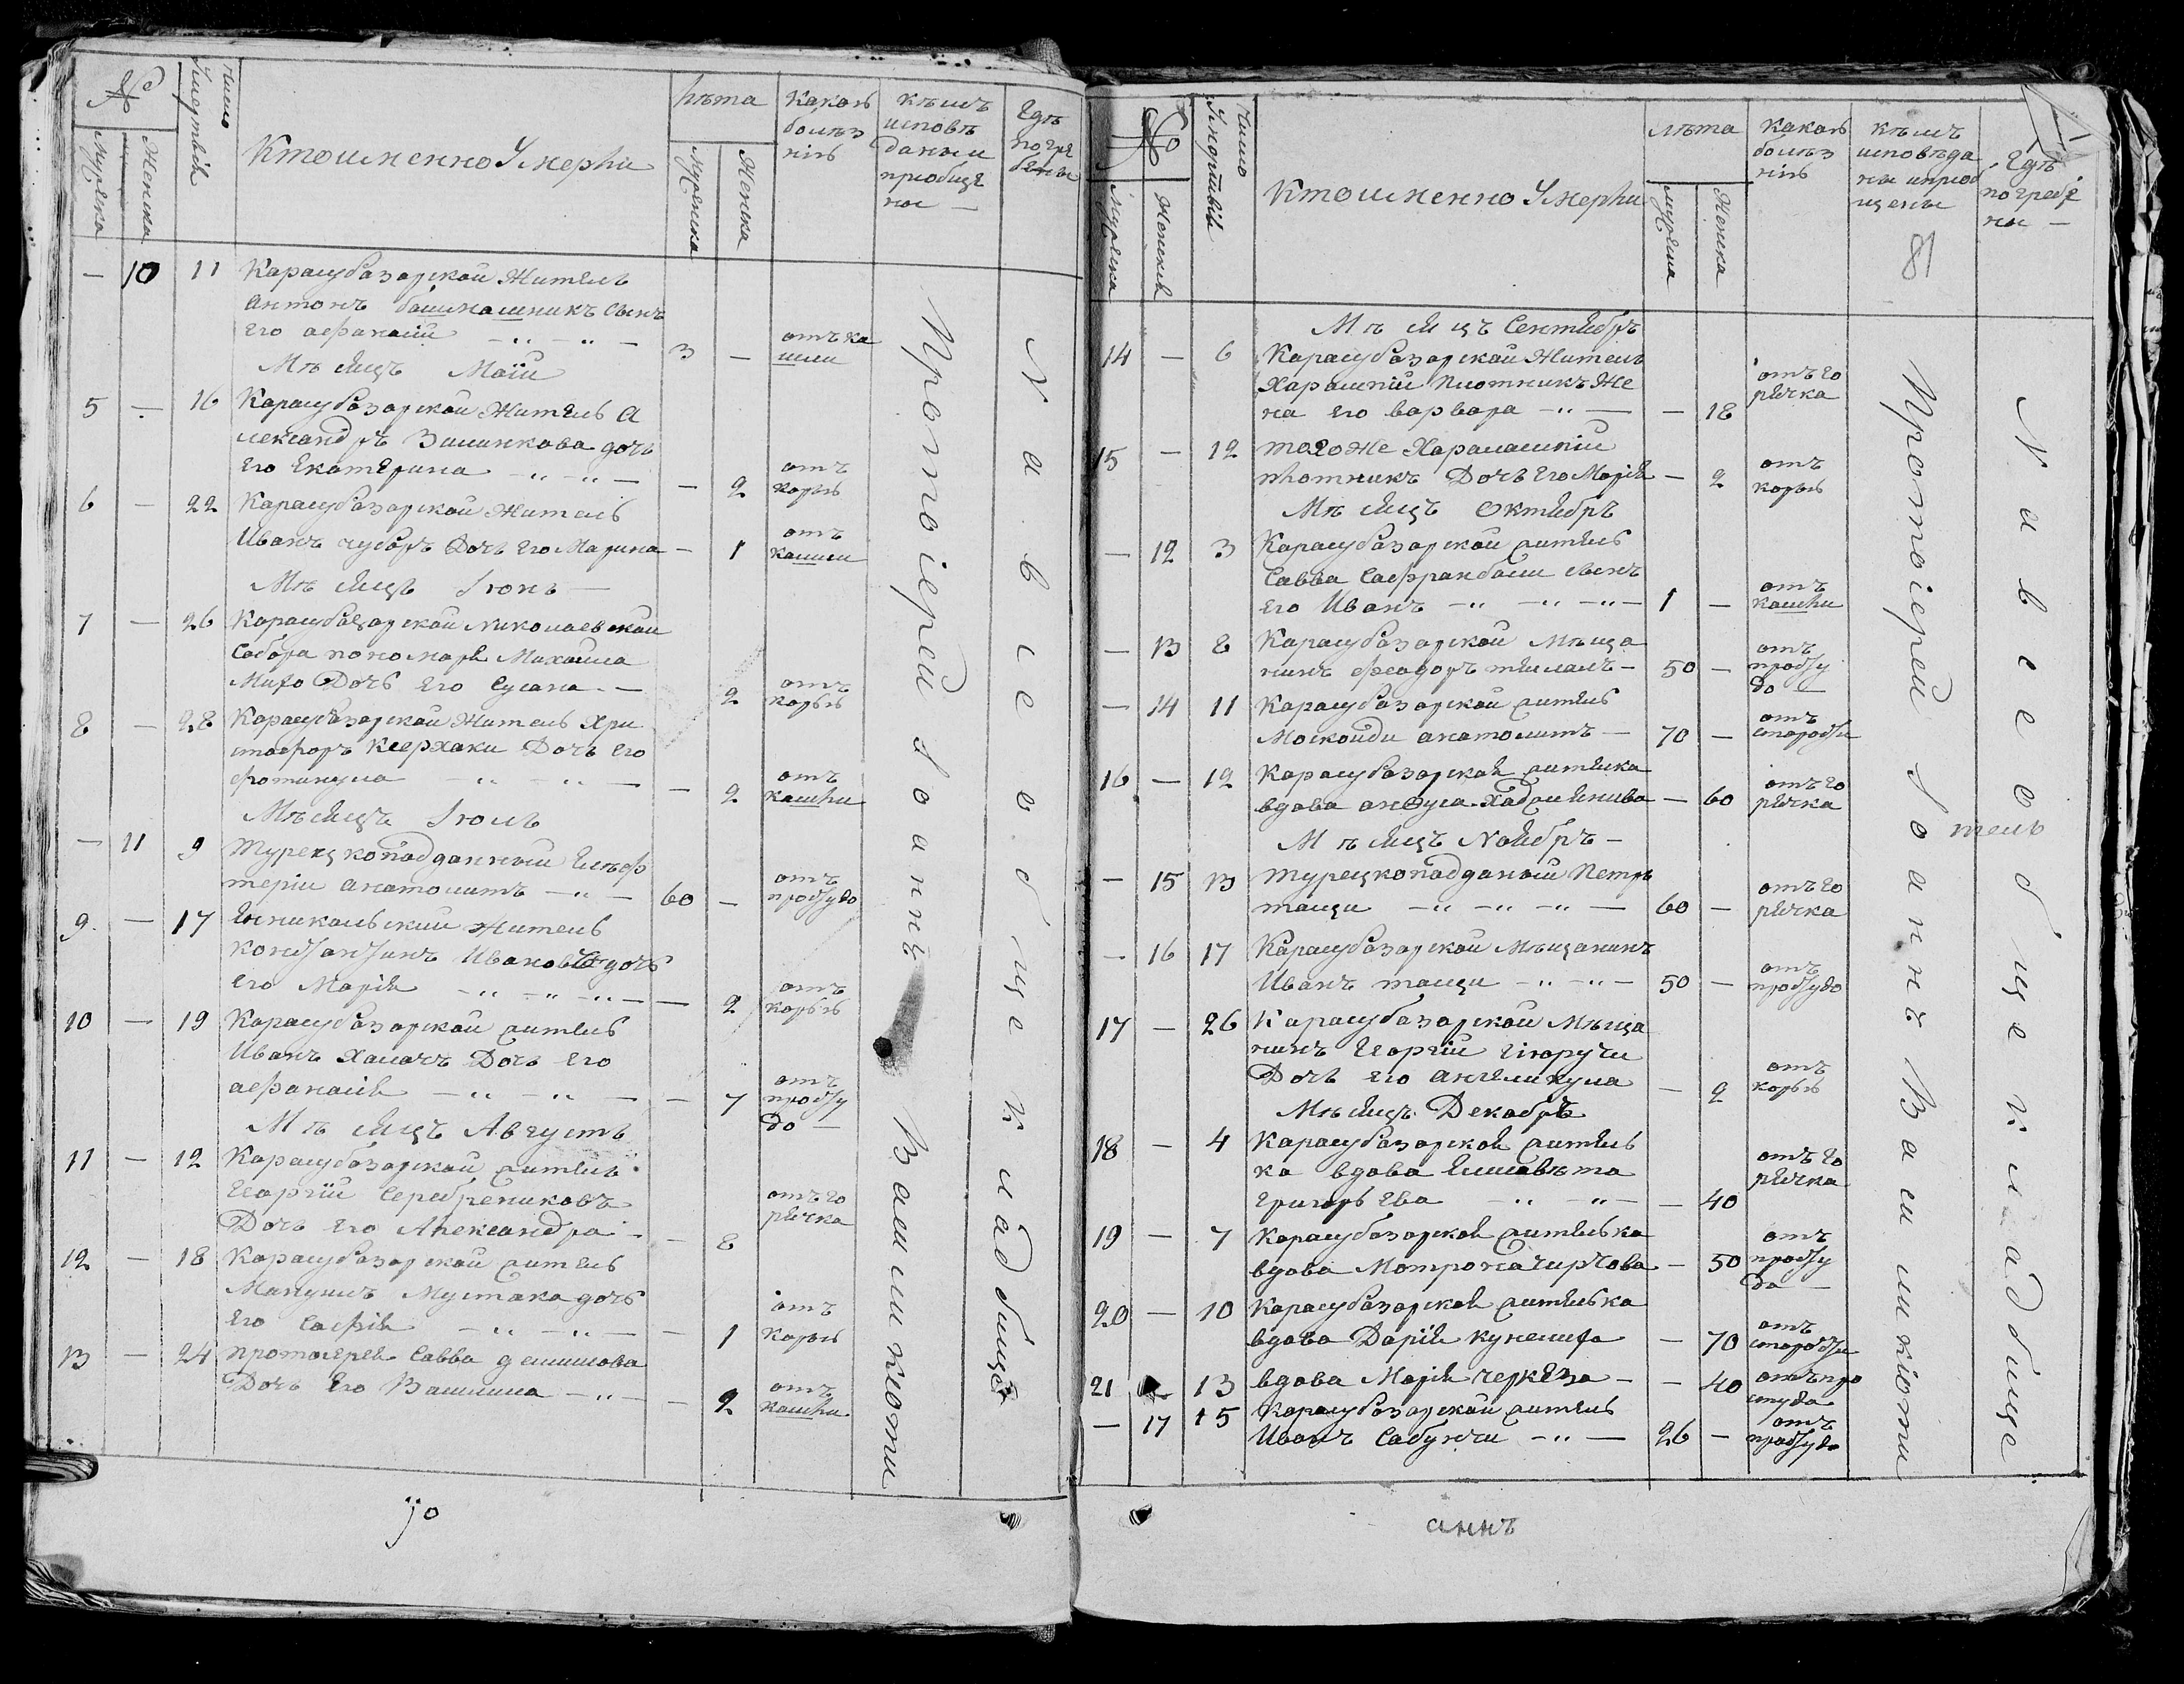 №
число Умертвій
Мужеска
Женска
Кто именно Умерли
Лѣта
Мужеска
Женска
Какою
болѣз
нію
кѣмъ
исповѣ
даны и
приобще
ны —
Гдѣ
погре
бены
— 10 11 Карасубазарской Житель
Антонъ башмашникъ сынъ
его афанасій — " — " — 3 — отъ ка
шли
Мѣсяцъ Маій
5 — 16 Карасубазарской Житель А
лександръ Зилинкова дочь
его Екатерина — " — " — — 2 отъ
корьи
6 — 22 Карасубазарской Житель
Иванъ чубаръ Дочь его Марина — 1 отъ
кашли
Мѣсяцъ Iюнь —
7 — 26 Карасубазарской Николаевской
Собора пономаря Михаила
Дочь его Сусана — 2 отъ
корьи
8 — 28 Карасубазарской Житель Хри
стофоръ Дочь его
фотинула — " — " — — 2 отъ
кашли
Мѣсяцъ Iюль
— 11 9 Турецкоподданный Елеф
терій анатолитъ — " — 60 — отъ
простудо
9. — 17 Ениколский Житель
константинъ Ивановъ дочь
его Марія — " — " — " — — 2 отъ
корьи
10 — 19 Карасубазарской житель
Иванъ Халачъ Дочь его
афанасія — " — " — — 7 отъ
просту
до —
Мѣсяцъ Августъ
11 — 12 Карасубазарской житель
Георгій Серебрениковъ
Дочь его Александра — — 8 отъ го
рячка
12 — 18 Карасубазарской житель
Мануилъ Мустака дочь
его Софія — " — " — — 1 отъ
корьи
13 — 24 протоиерей Савва
Дочь его Василиса — " — — 2 отъ
кашли
Протоіерей Iоаннъ Василикіоти
На всеобще кладбище
№
Мужеска
Женскій
число Умертвій
Кто именно Умерли
лѣта
мужеска
Женска
какою
болѣз
нію
кѣмъ
исповѣда
ны иприоб
щены
Гдѣ
погребе
ны —
81
Мѣсяцъ Сентябръ
14 — 6 Карасубазарской Житель
Харалампій плотникъ Же
на его варвара — " — — 18 отъ го
рячка
15 — 12 тогоже Харалампій
плотникъ Дочь его Марія — 2 отъ
корьи
Мѣсяцъ октябръ
— 12 3 Карасубазарской житель
Савва Сафранбали сынъ
его Иванъ — " — " — " — 1 — отъ
кашли
— 13 8 Карасубазарской Мѣща
нинъ феодоръ — 50 — отъ
просту
до —
— 14 11 Карасубазарской житель
анатолитъ — 70 — отъ
старости
16 — 12 Карасубазарская жителка
вдова — 60 отъ го
рячка
Мѣсяцъ Ноябръ —
— 15 13 турецкоподданой Петръ
ташчи — " — " — " — 60 — отъ го
рячка
— 16 17 Карасубазарской Мѣщанинъ
Иванъ ташчи — " — " — 50 — отъ
простудо
17 — 26 Карасубазарской Мѣща
нинъ Георгій
Дочь его ангеликула — 2 отъ
корьи
Мѣсяцъ Декабръ
18 — 4 Карасубазарской житель
ка вдова Елисавѣта
григорьева — " — " — — 40 отъ го
рячка
19 — 7 Карасубазарской жителька
вдова Мотрона — 50 отъ
просту
да —
20 — 10 Карасубазарской жителька
вдова Дарія — 70 отъ
старости
21 — 13 вдова Марія черкеза — — 40 отъ про
студа
— 17 15 Карасубазарской житель
Иванъ Сабунчи — " — 26 — отъ
простудо
Протоіерей Iоаннъ Василикіоти
На всеобще кладбище
тель
Iо
аннъ